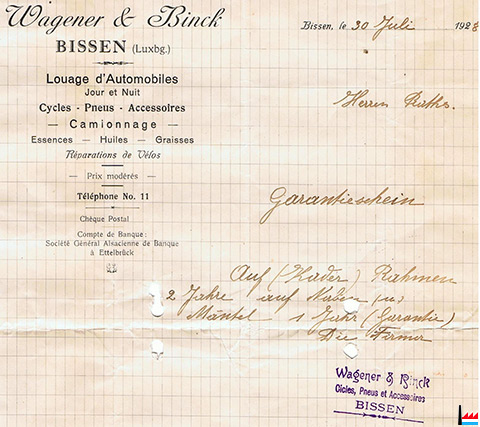 Wagener & Binck
BISSEN (Luxbg.)
Louage d'Automobiles
Jour et Nuit
Cycles - Pneus - Accessoires
— Camionnage —
Essences — Huiles — Graisses
Réparations de Vélos
— Prix modérés —
Téléphone No. 11
Chèque Postal
Compte de Banque:
Société Général Alsacienne de Banque
à Ettelbrück
Bissen, le 30 Juli 1928
Herrn
Garantieschein
Auf (Räder) Rahmen
2 Jahre auf Naben (u)
Mäntel 1 Jahr (Garantie)
Die Firma
Wagener & Binck
Cicles, Pneus et Accessoires
BISSEN